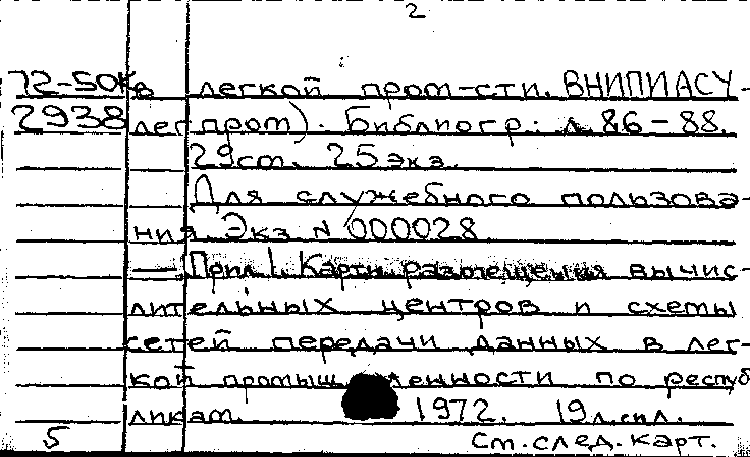 2
72-50кв легкой пром-сти. ВНИПИАСУ-
2938 легпром). Библиогр.: л. 86-88.
29ст. 25экз.
Для служебного пользова-
ния. Экз N 000028
— Прил 1. Карти размещения вычис-
лительных центров и схемы
сетей передачи данных в лег-
кой промышленности по респуб
ликам. 1972. 19л.
5 См. след. карт.